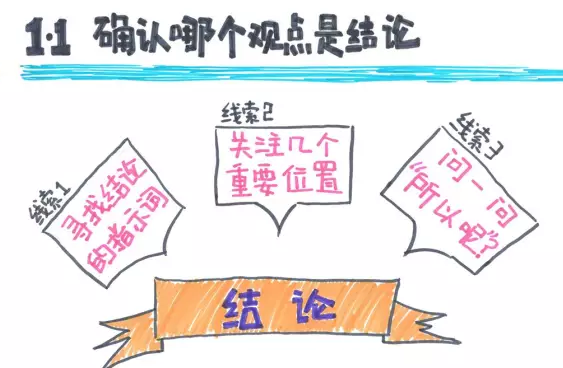 1·1 确认哪个观点是结论
线索1
寻找结论
的指示词
线索2
关注几个
重要位置
线索3
问一问
“所以呢”?
结论